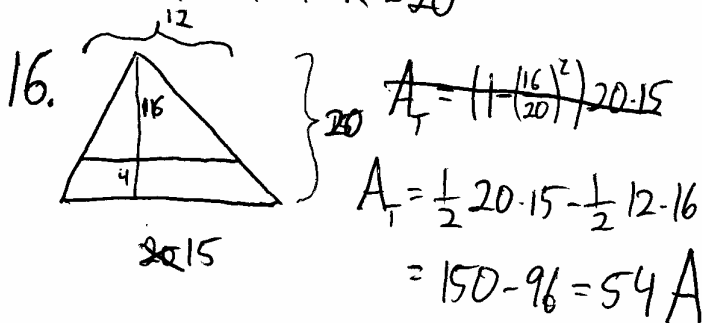 K = 20
12
16.
16
4
20
15
A_T = (1-(16/20)^2) 20·15
A_T = 1/2 20·15 - 1/2 12·16
= 150 - 96 = 54 A